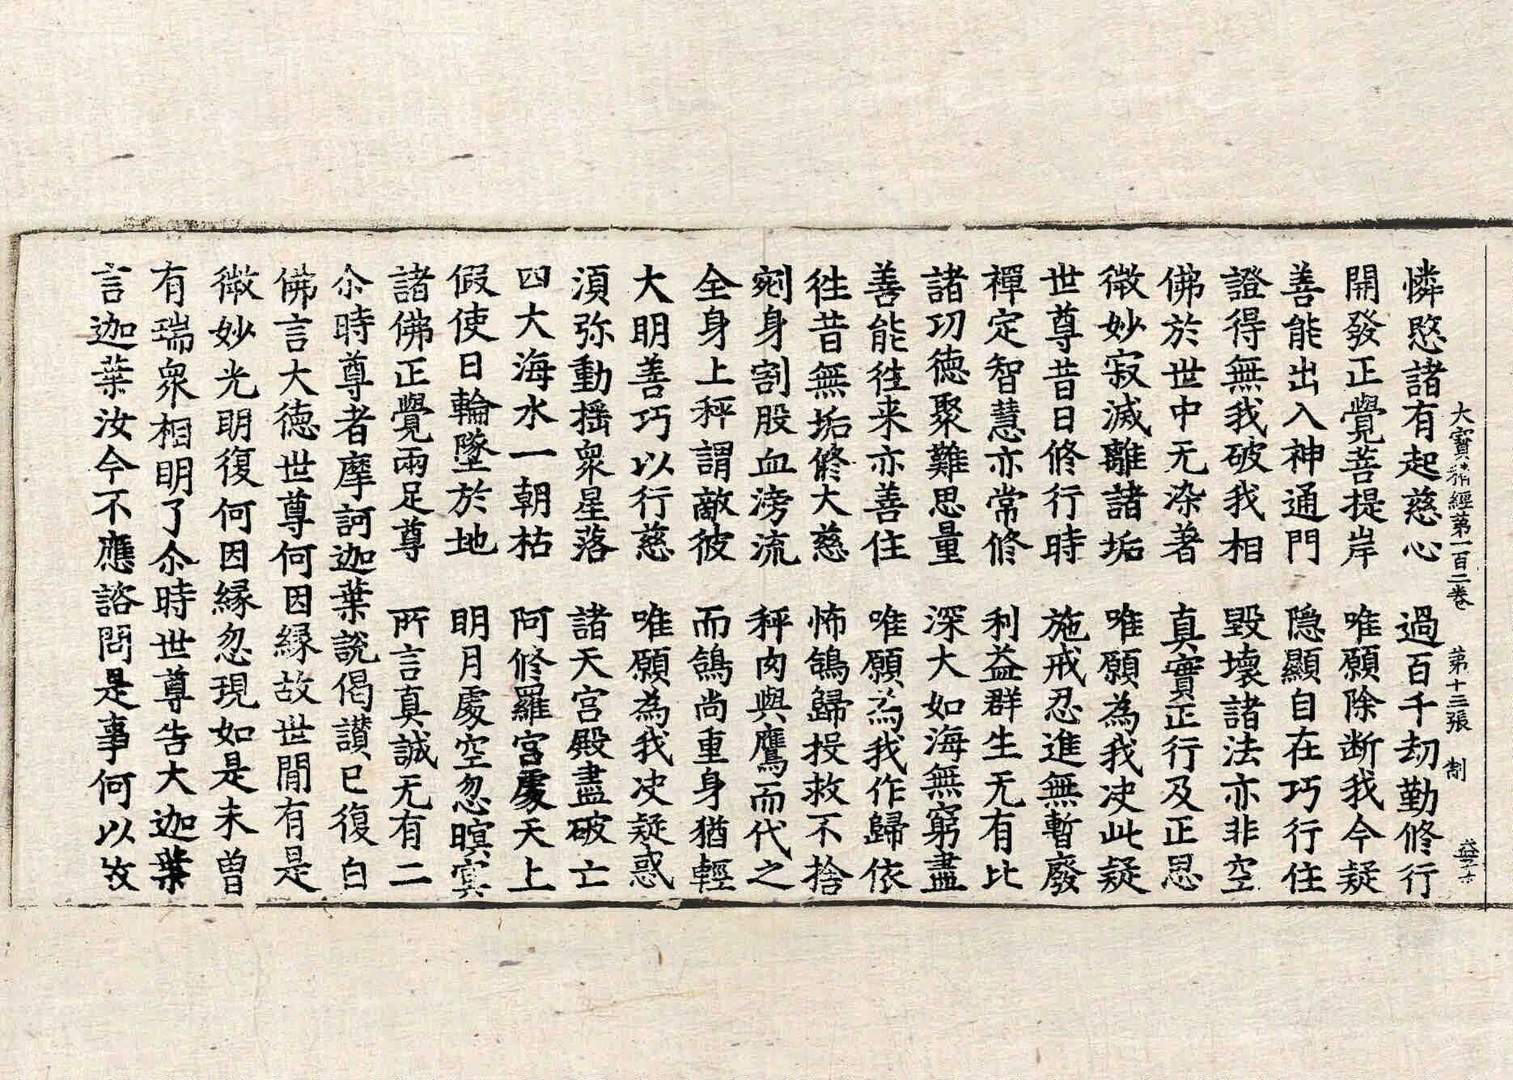 大寶積經第一百二卷　第十三張　制
憐愍諸有起慈心　過百千劫勤修行
開發正覺菩提岸　唯願除断我今疑
善能出入神通門　隱顯自在巧行住
證得無我破我相　毀壞諸法亦非空
佛於世中无染著　真實正行及正思
微妙寂滅離諸垢　唯願為我決此疑
世尊昔日修行時　施戒忍進無暫廢
禪定智慧亦常修　利益群生无有比
諸功德聚難思量　深大如海無窮盡
善能往来亦善住　唯願為我作歸依
往昔無垢修大慈　怖鴿歸投救不捨
剜身割股血滂流　秤肉與鷹而代之
全身上秤謂敵彼　而鴿尚重身猶輕
大明善巧以行慈　唯願為我决疑惑
須弥動搖衆星落　諸天宮殿盡破亡
四大海水一朝枯　阿修羅宮處天上
假使日輪墜於地　明月處空忽暝寞
諸佛正覺兩足尊　所言真誠无有二
尒時尊者摩訶迦葉說偈讃已復白
佛言大德世尊何因緣故世間有是
微妙光明復何因緣忽現如是未曾
有瑞衆相明了尒時世尊告大迦葉
言迦葉汝今不應諮問是事何以故